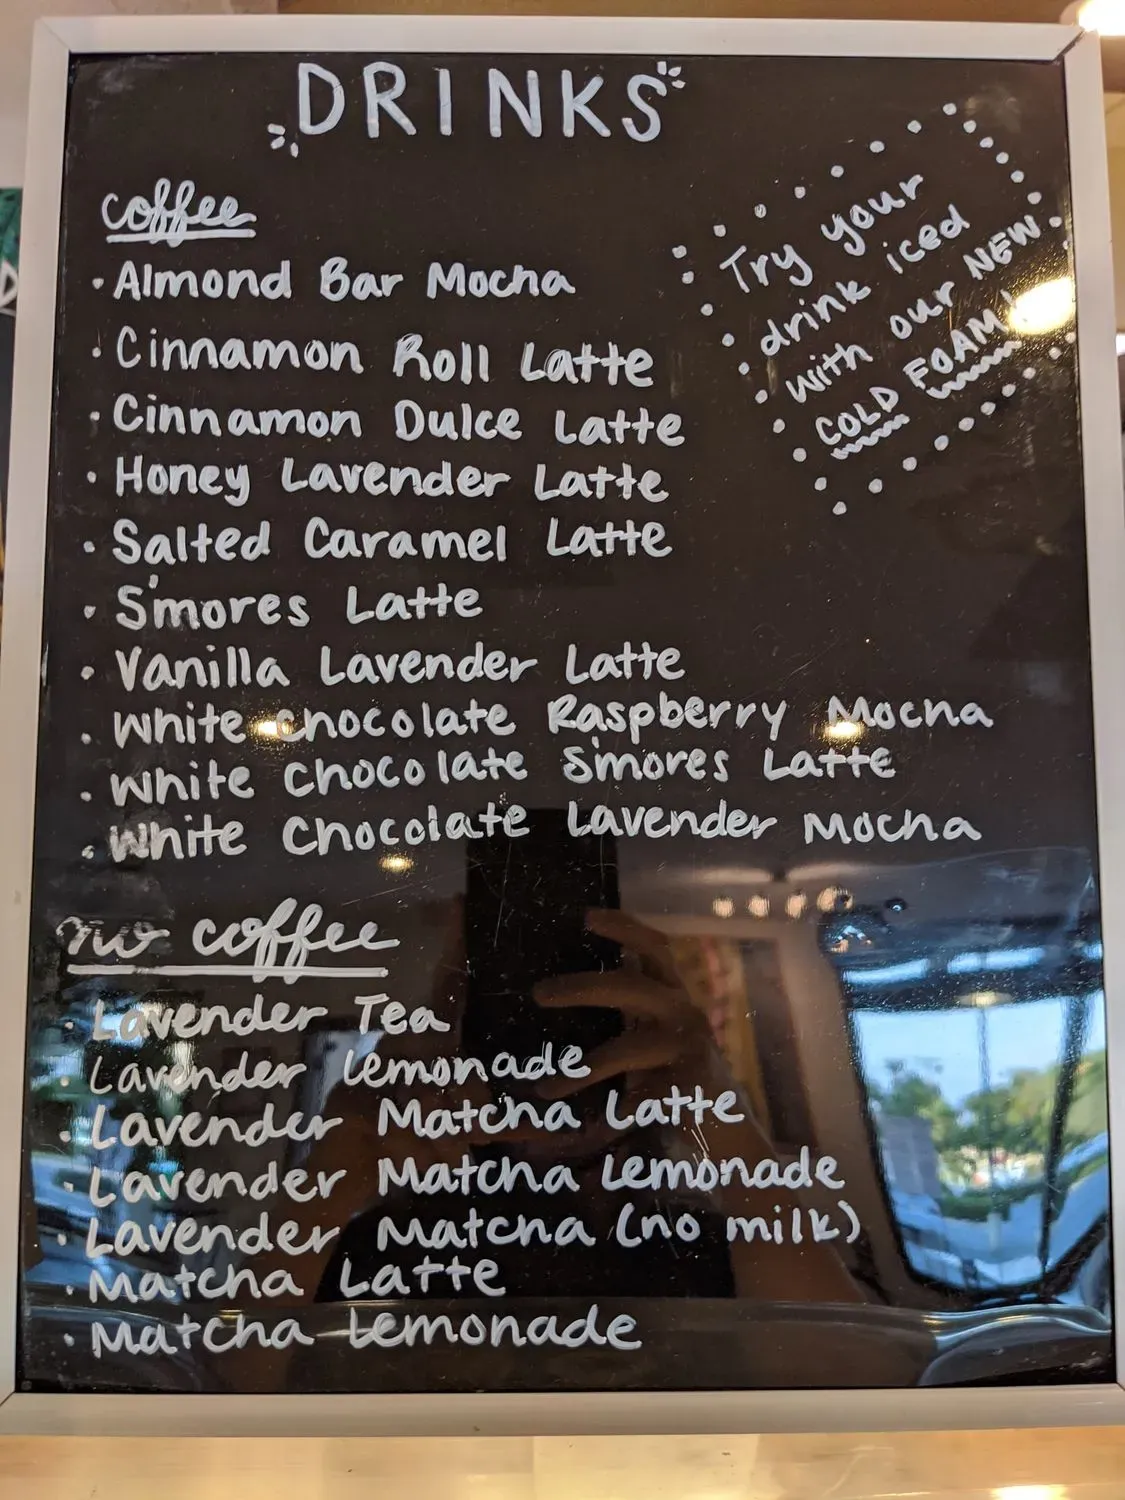 DRINKS
coffee
· Almond Bar Mocha
· Cinnamon Roll Latte
· Cinnamon Dulce Latte
· Honey Lavender Latte
· Salted Caramel Latte
· S'mores Latte
· Vanilla Lavender Latte
· White Chocolate Raspberry Mocha
· White Chocolate S'mores Latte
· White Chocolate Lavender Mocha
Try your
drink iced
with our NEW
COLD FOAM!
no coffee
· Lavender Tea
· Lavender Lemonade
· Lavender Matcha Latte
· Lavender Matcha Lemonade
· Lavender Matcha (no milk)
· Matcha Latte
· Matcha Lemonade